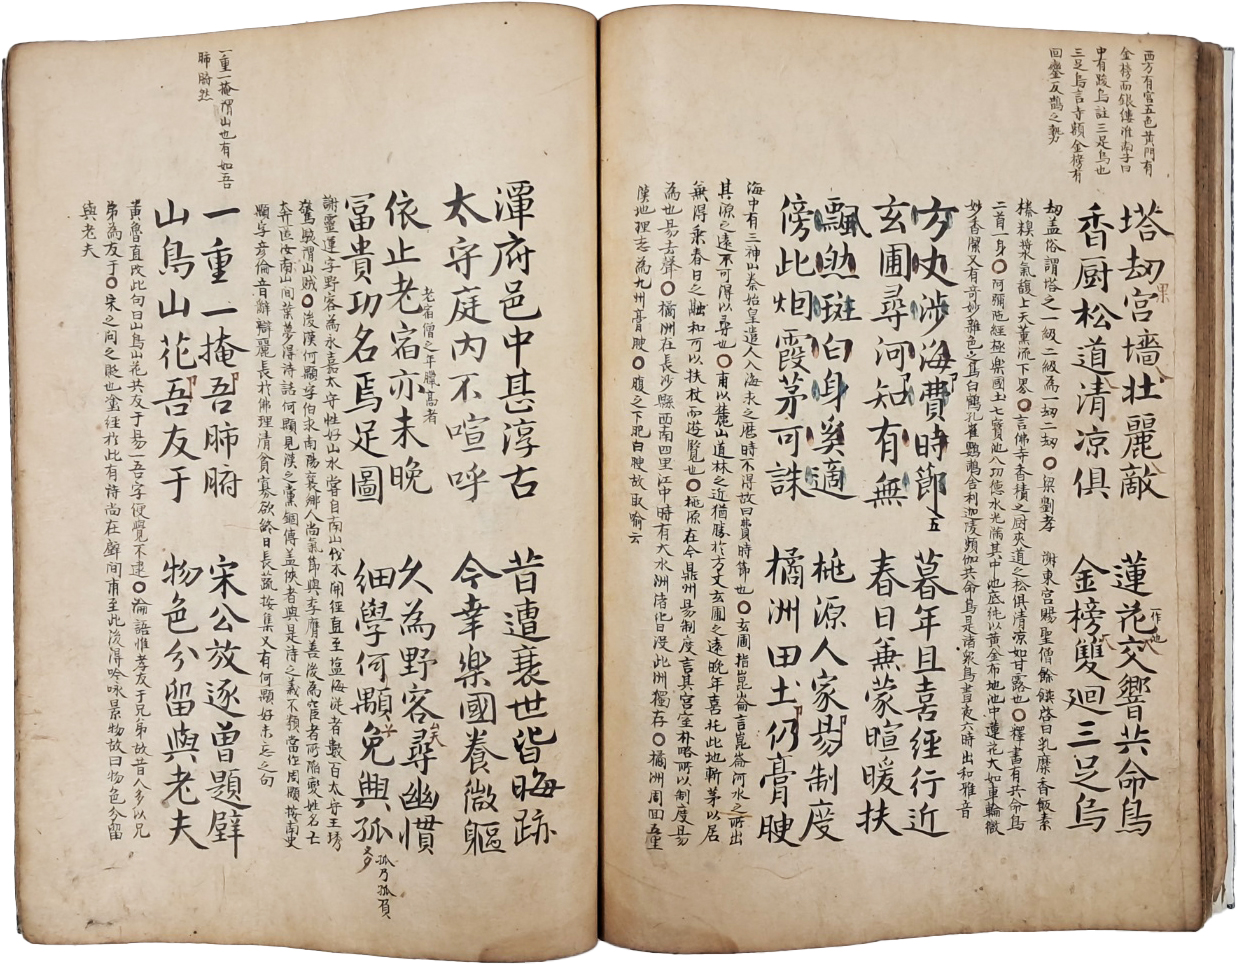 西方有宮五色黃門有
金榜而銀鏤淮南子曰
中有踆烏註三足烏也
三足烏言寺額金榜有
回鸞反鵲之勢
塔劫宮墻壯麗敵 蓮花交響共命鳥
香厨松道清凉俱 金榜雙廻三足烏
劫盖俗謂塔之一級二級為一劫二劫○梁劉孝 謝東宮賜聖僧餘饌啓曰乳糜香飯素
榛糗漿氣馥上天薰流下界○言佛寺香積之厨夾道之松俱清凉如甘露也○釋書有共命鳥
二首一身○阿彌陁經極樂國土七寶池八功德水充滿其中池底純以黃金布地池中蓮花大如車輪微
妙香㓗又有奇妙雜色之鳥白鶴孔雀鸚鵡舍利迦陵頻伽共命鳥是諸衆鳥晝夜六時出和雅音
方丈涉海費時節 五 暮年且喜經行近
玄圃尋河知有無 春日兼蒙暄暖扶
飄然斑白身奚適 桃源人家易制度
傍此烟霞茅可誅 橘洲田土仍膏腴
海中有三神山秦始皇遣人入海求之曆時不得故曰費時節也○玄圃指崑崙言崑崙河水之所出
其源之遠不可得以尋也○甫以麓山道林之近猶勝於方丈玄圃之遠晚年喜托此地斬茅以居
無得乘春日之融和可以扶杖而遊覽也○桃源在今鼎州易制度言其宮室朴略所以制度易
為也易去聲○橘洲在長沙縣西南四里江中時有大水洲渚皆没此洲獨存○橘洲周回五里
漢地理志為九州膏腴○腹之下肥曰腴故取喻云
潭府邑中甚淳古 昔遭衰世皆晦跡
太守庭內不喧呼 今幸樂國養微軀
依止老宿亦未晚 久為野客尋幽慣
老宿僧之年臘高者
富貴功名焉足圖 細學何顒免興孤
孤乃孤負
謝靈運字野客為永嘉太守性好山水嘗自南山伐木開徑直至塩海從者數百太守王琇
驚駭謂山賊○後漢何顒字伯求南陽襄鄉人尚氣節與李膺善後為宦者所陷變姓名亡
奔匿汝南山間葉夢得詩話何顒見漢之黨錮傳盖俠者與是詩之義不類當作周顒按南史
顒字彦倫音辭辯麗長於佛理清貧寡欲終日長蔬按集又有何顒好未忘之句
一重一掩謂山也有如吾
肺腑然
一重一掩吾肺腑 宋公放逐曾題壁
山鳥山花吾友于 物色分留與老夫
黃魯直改此句曰山鳥山花共友于易一吾字便覺不逮○論語惟孝友于兄弟故昔人多以兄
弟為友于○宋之問之貶也塗經於此有詩尚在壁間甫至此後得吟咏景物故曰物色分留
與老夫